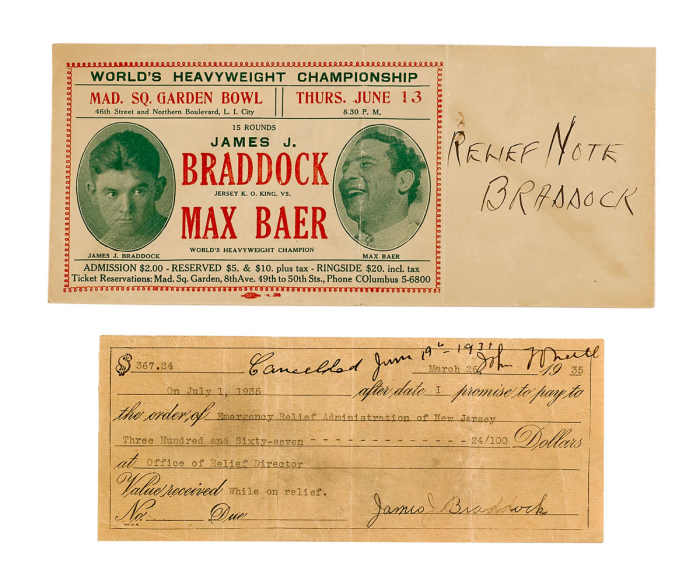 WORLD'S HEAVYWEIGHT CHAMPIONSHIP
MAD. SQ. GARDEN BOWL THURS. JUNE 13
46th Street and Northern Boulevard, L. I. City 8.30 P. M.
15 ROUNDS
JAMES J.
BRADDOCK
JERSEY K. O. KING, VS.
MAX BAER
WORLD'S HEAVYWEIGHT CHAMPION
JAMES J. BRADDOCK MAX BAER
ADMISSION $2.00 - RESERVED $5. & $10. plus tax - RINGSIDE $20. incl. tax
Ticket Reservations: Mad. Sq. Garden, 8th Ave. 49th to 50th Sts., Phone COlumbus 5-6800
RELIEF NOTE
BRADDOCK
$367.24 Cancelled June 19th - John
March 26 1935
On July 1, 1936 after date I promise to pay to
the order of Emergency Relief Administration of New Jersey
Three Hundred and Sixty-seven - - - - - - - - - - - - - - - - 24/100 Dollars
at Office of Relief Director
Value received While on relief.
No. Due James J Braddock